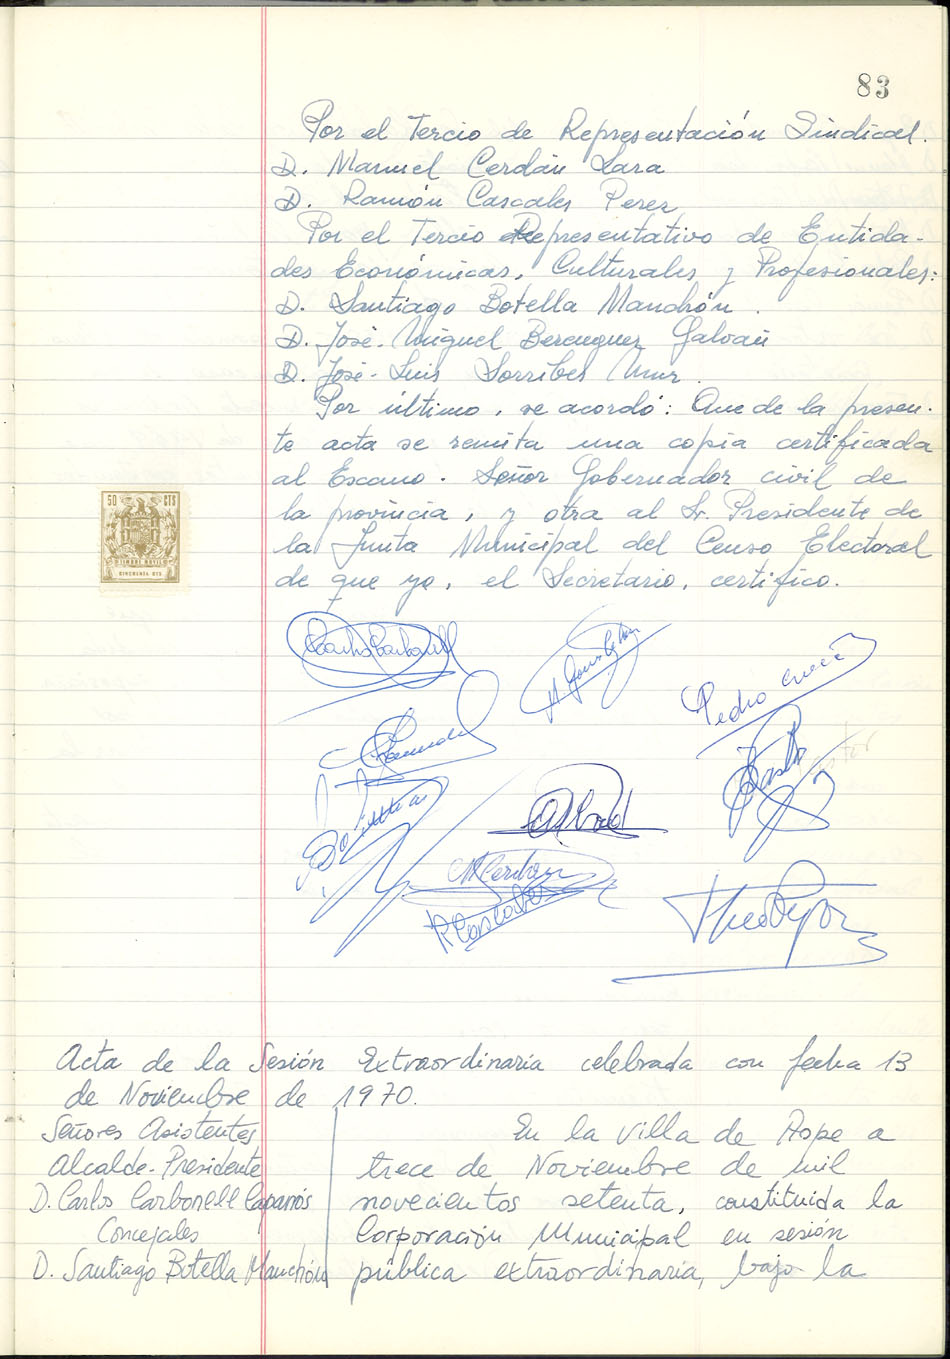 83
Por el Tercio de Representación Sindical.
D. Manuel Cerdán Lara
D. Ramón Cascales Perez
Por el Tercio Representativo de Entida-
des Económicas, Culturales y Profesionales:
D. Santiago Botella Manchón.
D. José-Miguel Berenguer Galván
D. José-Luis Sorribes Mur
Por último, se acordó: Que de la presen-
te acta se remita una copia certificada
al Excmo. Señor Gobernador civil de
la provincia, y otra al Sr. Presidente de
la Junta Municipal del Censo Electoral
de que yo, el Secretario, certifico.
50 CTS
TIMBRE MOVIL
CINCUENTA CTS
Carlos Carbonell
Pedro
Botella
M Cerdán
R Cascales
Acta de la Sesión Extraordinaria celebrada con fecha 13
de Noviembre de 1970.
Señores Asistentes
Alcalde-Presidente
D. Carlos Carbonell Caparrós
Concejales
D. Santiago Botella Manchón
En la villa de Aspe a
trece de Noviembre de mil
novecientos setenta, constituida la
Corporación Municipal en sesión
pública extraordinaria, bajo la